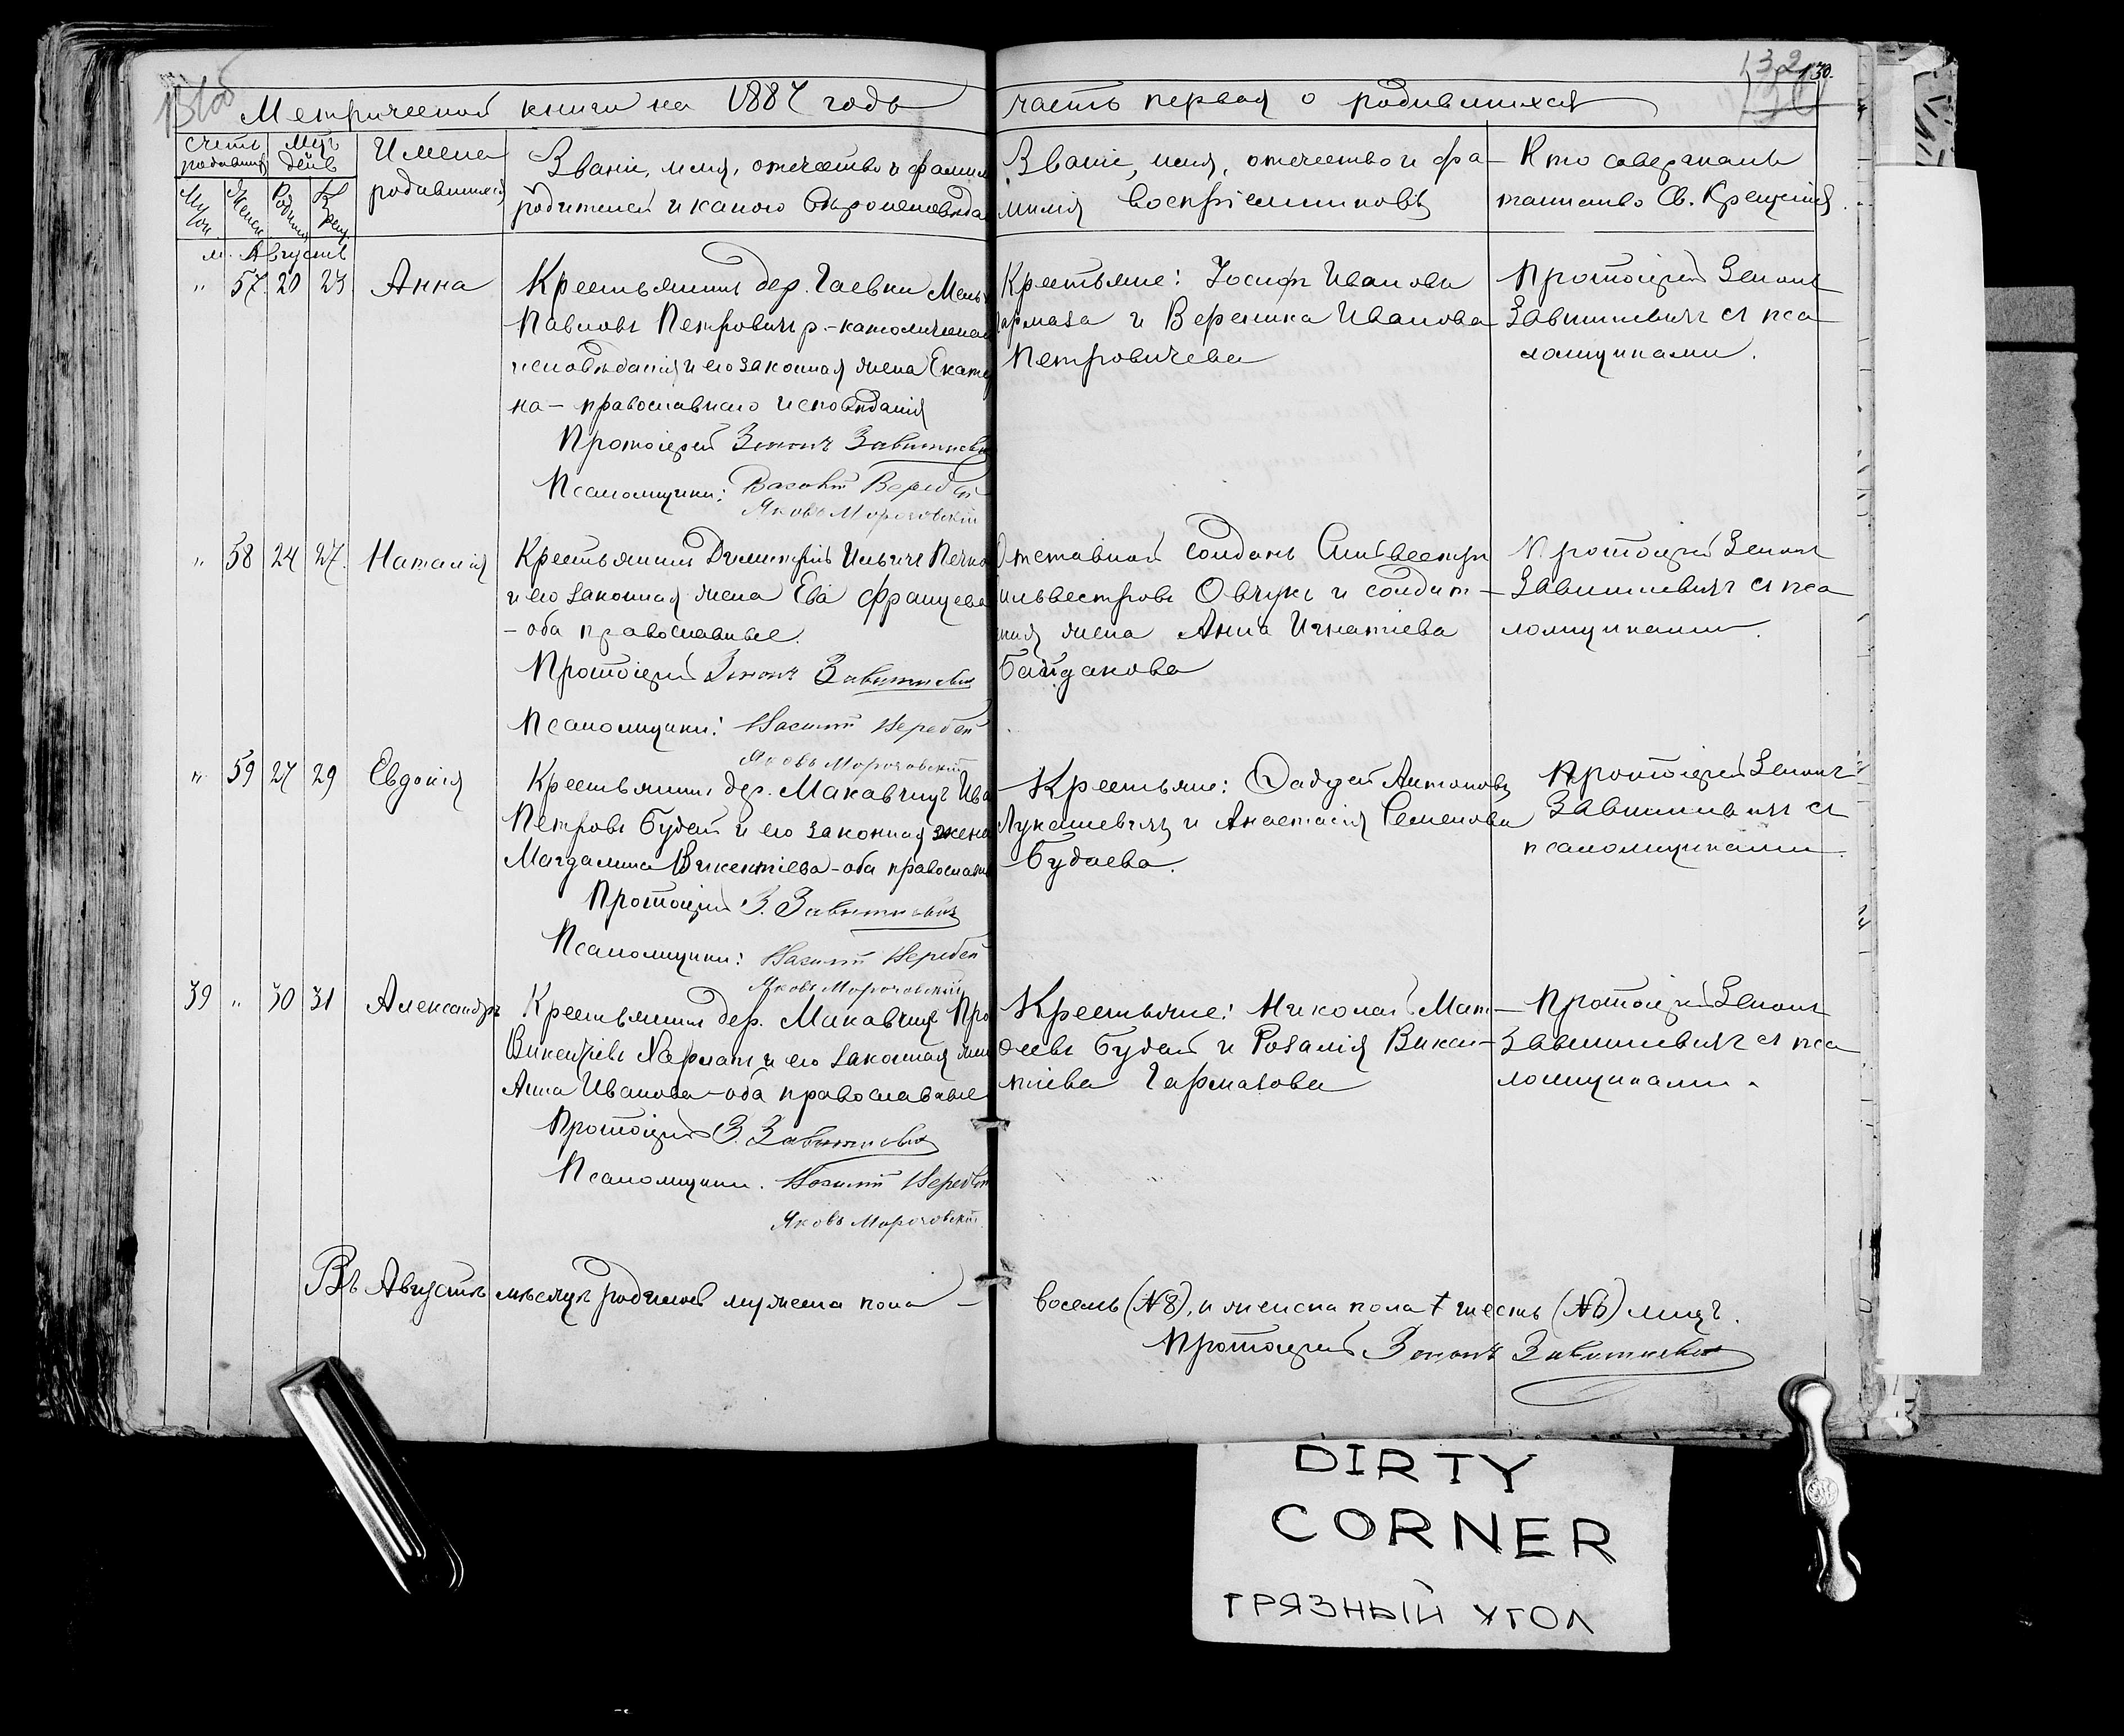 132
130.
Метрической книги на 1887 годъ часть первая о родившихся
Счетъ родившихъ
Муж
Женск
Мѣс
дней
Рожден
Крещ.
Имена
родившихся
Званіе, имя, отечество и фамил
родителей и какого вѣроисповѣда
Званіе, имя, отечество и фа-
милія воспріемниковъ
Кто совершалъ
таинство Св. Крещенія.
м. Августъ
" 57 20 23 Анна
Крестьянинъ дер. Гаевки
Павловъ Петровичъ р.-католическаго
исповѣданія и его законная жена Екате
на - православнаго исповѣданія
Протоіерей Зенонъ Завитневич
Псаломщики: Василій Веребей
Яковъ Морочовскій
Крестьяне: Іосифъ Ивановъ
армаза и Вероника Иванова
Петровичева
Протоіерей Зенонъ
Завитневичъ съ пса
ломщиками.
" 58 24 27. Наталія
Крестьянинъ Димитрій Ильичъ
и его законная жена Ева Францева
- оба православные.
Протоіерей Зенонъ Завитневич
Псаломщики: Василій Веребей
Яковъ Морочовскій
Отставной солдатъ Сильвестръ
ильвестровъ Овчукъ и солдат-
ская жена Анна Игнатіева
Байдакова
Протоіерей Зенонъ
Завитневичъ съ пса
ломщиками.
" 59 27 29 Евдокія
Крестьянинъ дер. Макавчицъ Ива
Петровъ Будай и его законная жена
Магдалина Викентіева - оба православн
Протоіерей З. Завитневичъ
Псаломщики: Василій Веребей
Яковъ Морочовскій
Крестьяне: Фаддей Антоновъ
Лукашевичъ и Анастасія Семенова
Будаева.
Протоіерей Зенонъ
Завитневичъ съ
псаломщиками.
39 " 30 31 Александръ
Крестьянинъ дер. Макавчицъ Про
Викентіевъ Хармазъ и его законная жен
Анна Иванова - оба православные
Протоіерей З. Завитневич
Псаломщики. Василій Веребей
Яковъ Морочовскій
Крестьяне: Николай Мат-
ѳеевъ Будай и Розалія Викен-
тіева Гармазова
Протоіерей Зенонъ
Завитневичъ съ пса
ломщиками.
Въ Августѣ мѣсяцѣ родилось мужеска пола - восемь (№8), и женска пола шесть (№6) лицъ.
Протоіерей Зенонъ Завитневич
DIRTY
CORNER
ГРЯЗНЫЙ УГОЛ